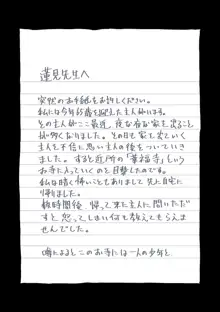 蓮見先生へ
突然のお手紙をお許しください。
私には今年65歳を迎えた主人がいます。
その主人がここ最近、夜な夜な家を出ること
が多くなりました。その日も家を出ていく
主人を不信に思い主人の後をついていき
ました。すると近所の「華福寺」という
お寺に入っていくのを目撃したのです。
私は暗く怖いこともありまして先に自宅に
帰りました。
数時間後、帰って来た主人に問いただ
すと怒ってしまい何も教えてもらえま
せんでした。
噂によるとこのお寺には一人の少年と